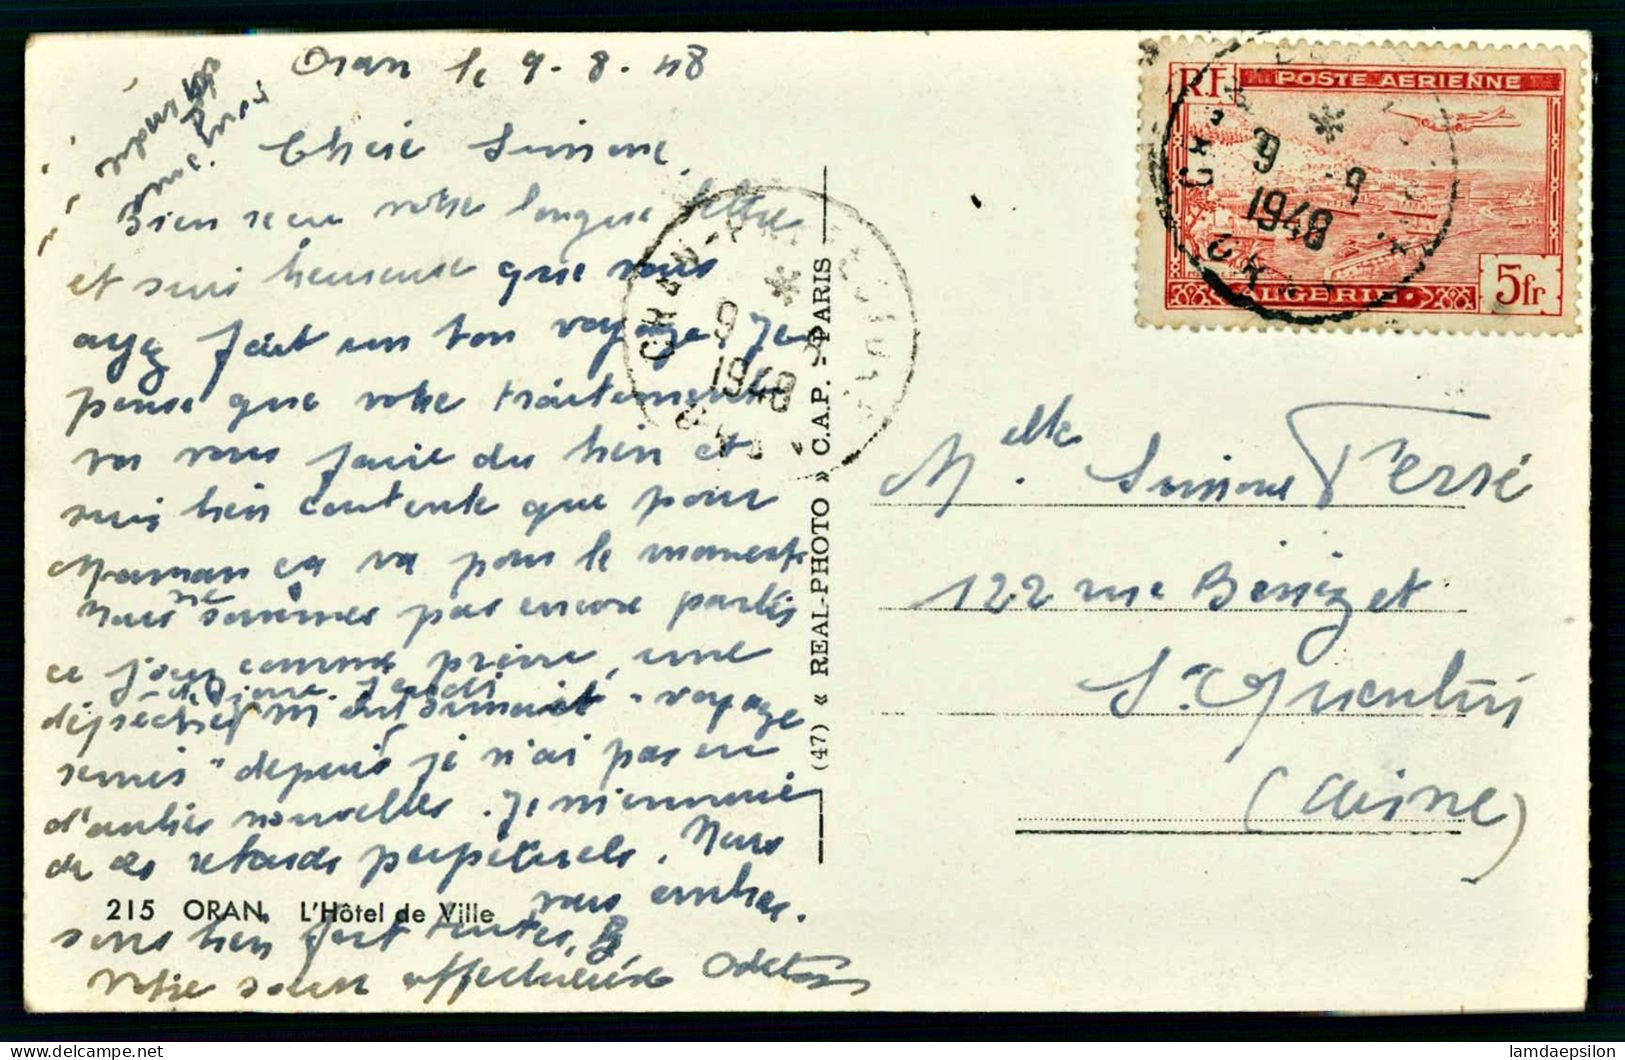 Oran le 9.8.48
Chère Simone,
Bien reçu votre longue lettre
et suis heureuse que vous
ayez fait un bon voyage. Je
pense que votre traitement
va vous faire du bien et
suis bien contente que pour
Maman ça va pour le moment.
Nous ne sommes pas encore partis
ce jour comme prévu, une
dépêche
m'est "voyage
remis" depuis je n'ai pas eu
d'autres nouvelles. Je m'ennuie
de ces retards perpétuels. Nous
vous embras.
sons bien fort toutes,
Votre sœur affectionnée Odette
215 ORAN. L'Hôtel de Ville
(47) « REAL-PHOTO » C.A.P. - PARIS
RF POSTE AERIENNE
ALGERIE
5fr
9 - 9
1948
ORAN
9
1948
Melle Simone Ferré
122 rue
St Quentin
(Aisne)
lamdaepsilon